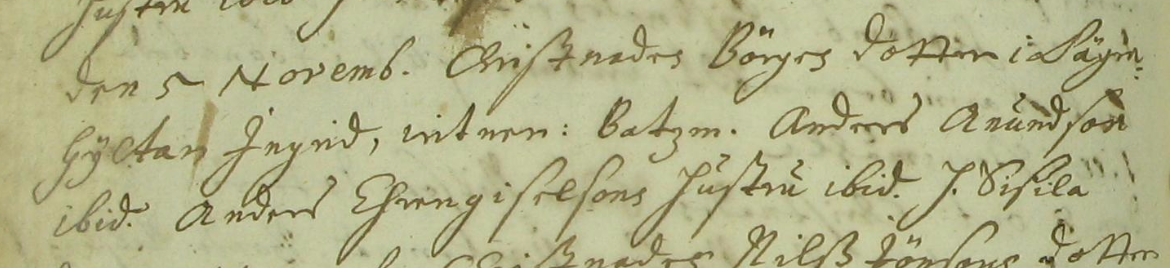 Hustru ibid
den 5 Novemb. Christnades Börges dotter i Lägm-
hyttan Ingrid, witnen: Batzm. Anders Anundson
ibid. Anders Ehrengiselsons Hustru ibid. H. Sisila
Christnades Nilß Jönsons dotter